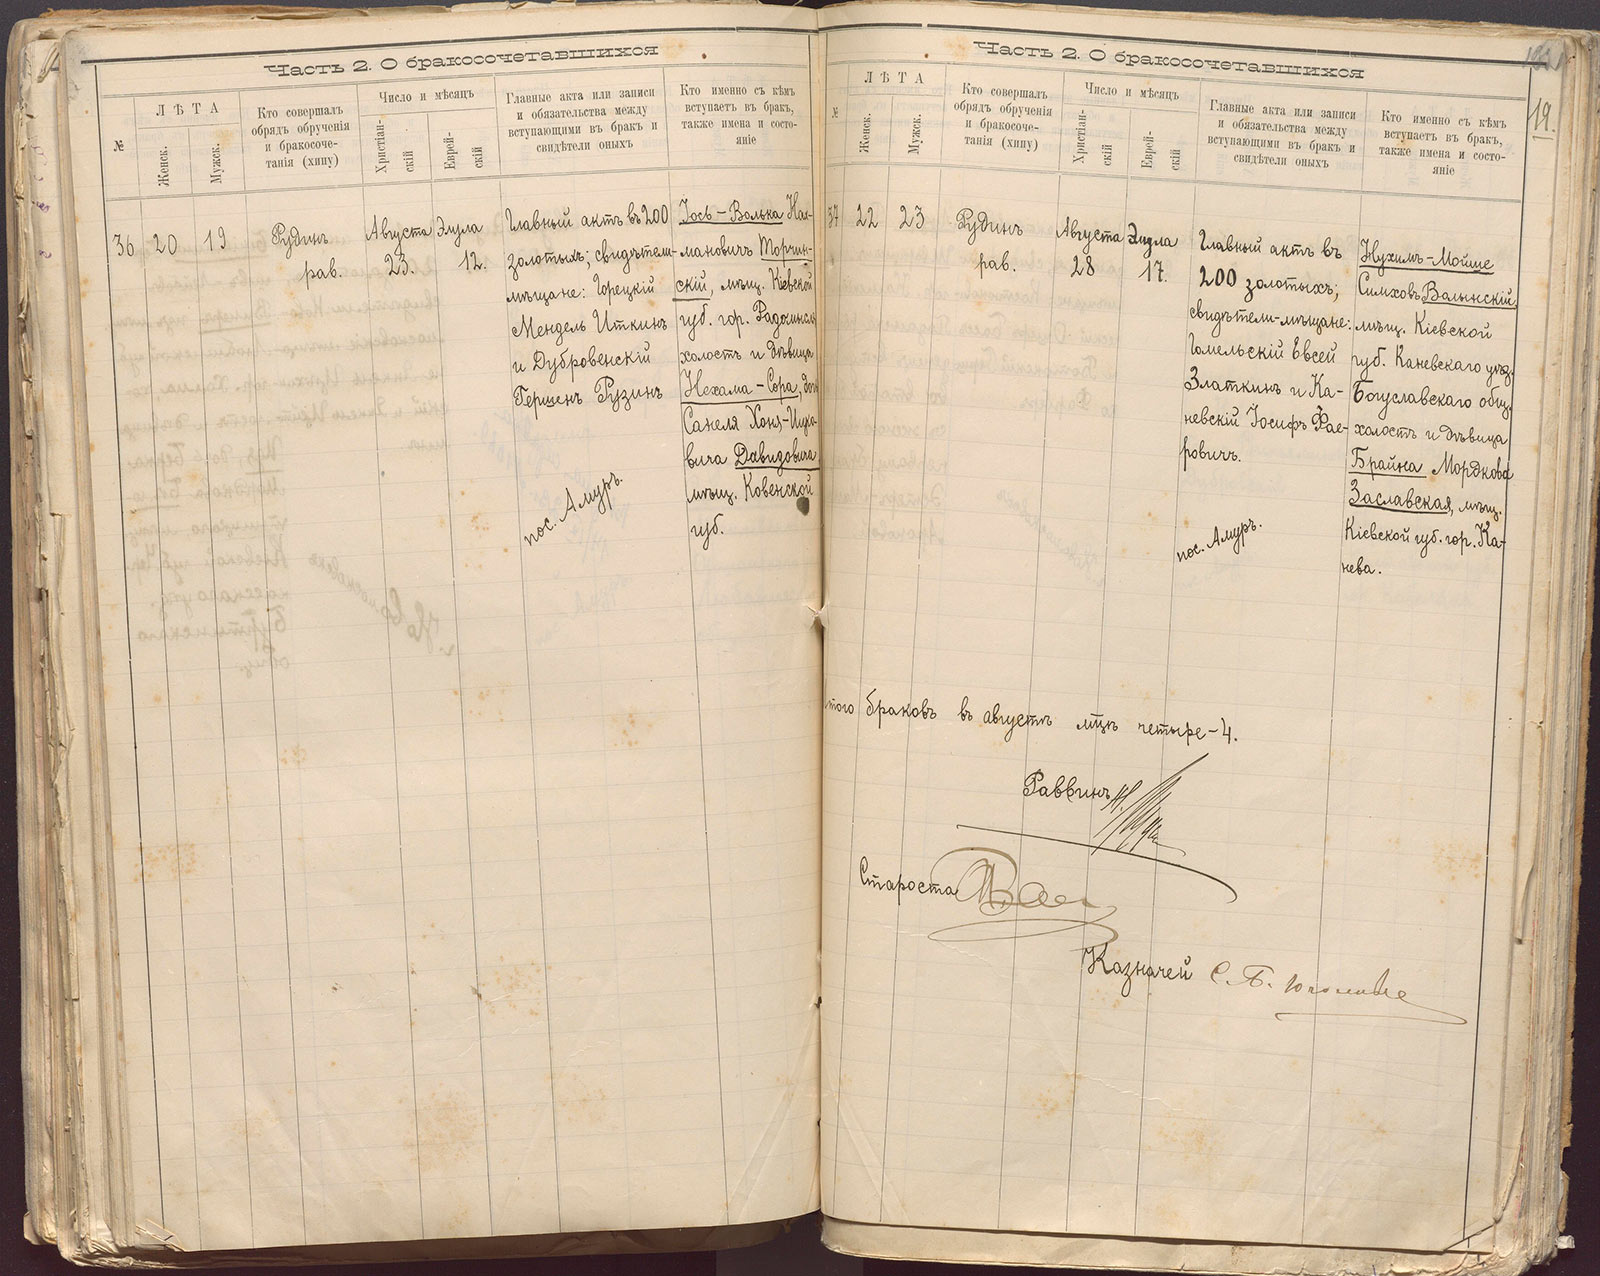 Часть 2. О бракосочетавшихся
№
ЛѢТА
Женск.
Мужск.
Кто совершалъ
обрядъ обрученія
и бракосоче-
танія (хипу)
Число и мѣсяцъ
Христіан-
скій
Еврей-
скій
Главные акта или записи
и обязательства между
вступающими въ бракъ и
свидѣтели оныхъ
Кто именно съ кѣмъ
вступаетъ въ бракъ,
также имена и состо-
яніе
36
20
19
Рудинъ
рав.
Августа
23.
Элула
12.
Главный актъ въ 200
золотыхъ; свидѣтели-
мѣщане: Горецкій
Мендель Иткинъ
и Дубровенскій
Гершенъ Рузинъ
пос. Амуръ.
Іось-Волька Нах-
мановичъ Торчин-
скій, мѣщ. Кіевской
губ. гор.
холостъ и дѣвица
Нехама-Сора, дочь
Хоня-Ицко-
вича Давидовича
мѣщ. Ковенской
губ.
Часть 2. О бракосочетавшихся
19.
№
ЛѢТА
Женск.
Мужск.
Кто совершалъ
обрядъ обрученія
и бракосоче-
танія (хипу)
Число и мѣсяцъ
Христіан-
скій
Еврей-
скій
Главные акта или записи
и обязательства между
вступающими въ бракъ и
свидѣтели оныхъ
Кто именно съ кѣмъ
вступаетъ въ бракъ,
также имена и состо-
яніе
37
22
23
Рудинъ
рав.
Августа
28
Элула
17.
Главный актъ въ
200 золотыхъ;
свидѣтели-мѣщане:
Гомельскій Евсей
Златкинъ и Ка-
невскій Іосифъ Фае-
ровичъ.
пос. Амуръ.
Нухимъ-Мойше
Симховъ Волынскій,
мѣщ. Кіевской
губ. Каневскаго уѣз.
Богуславскаго общ.
холостъ и дѣвица
Брайна Мордкова
Заславская, мѣщ.
Кіевской губ. гор. Ка-
нева.
итого браковъ въ августѣ мцѣ четыре-4.
Раввинъ
Староста
Казначей С. Б.